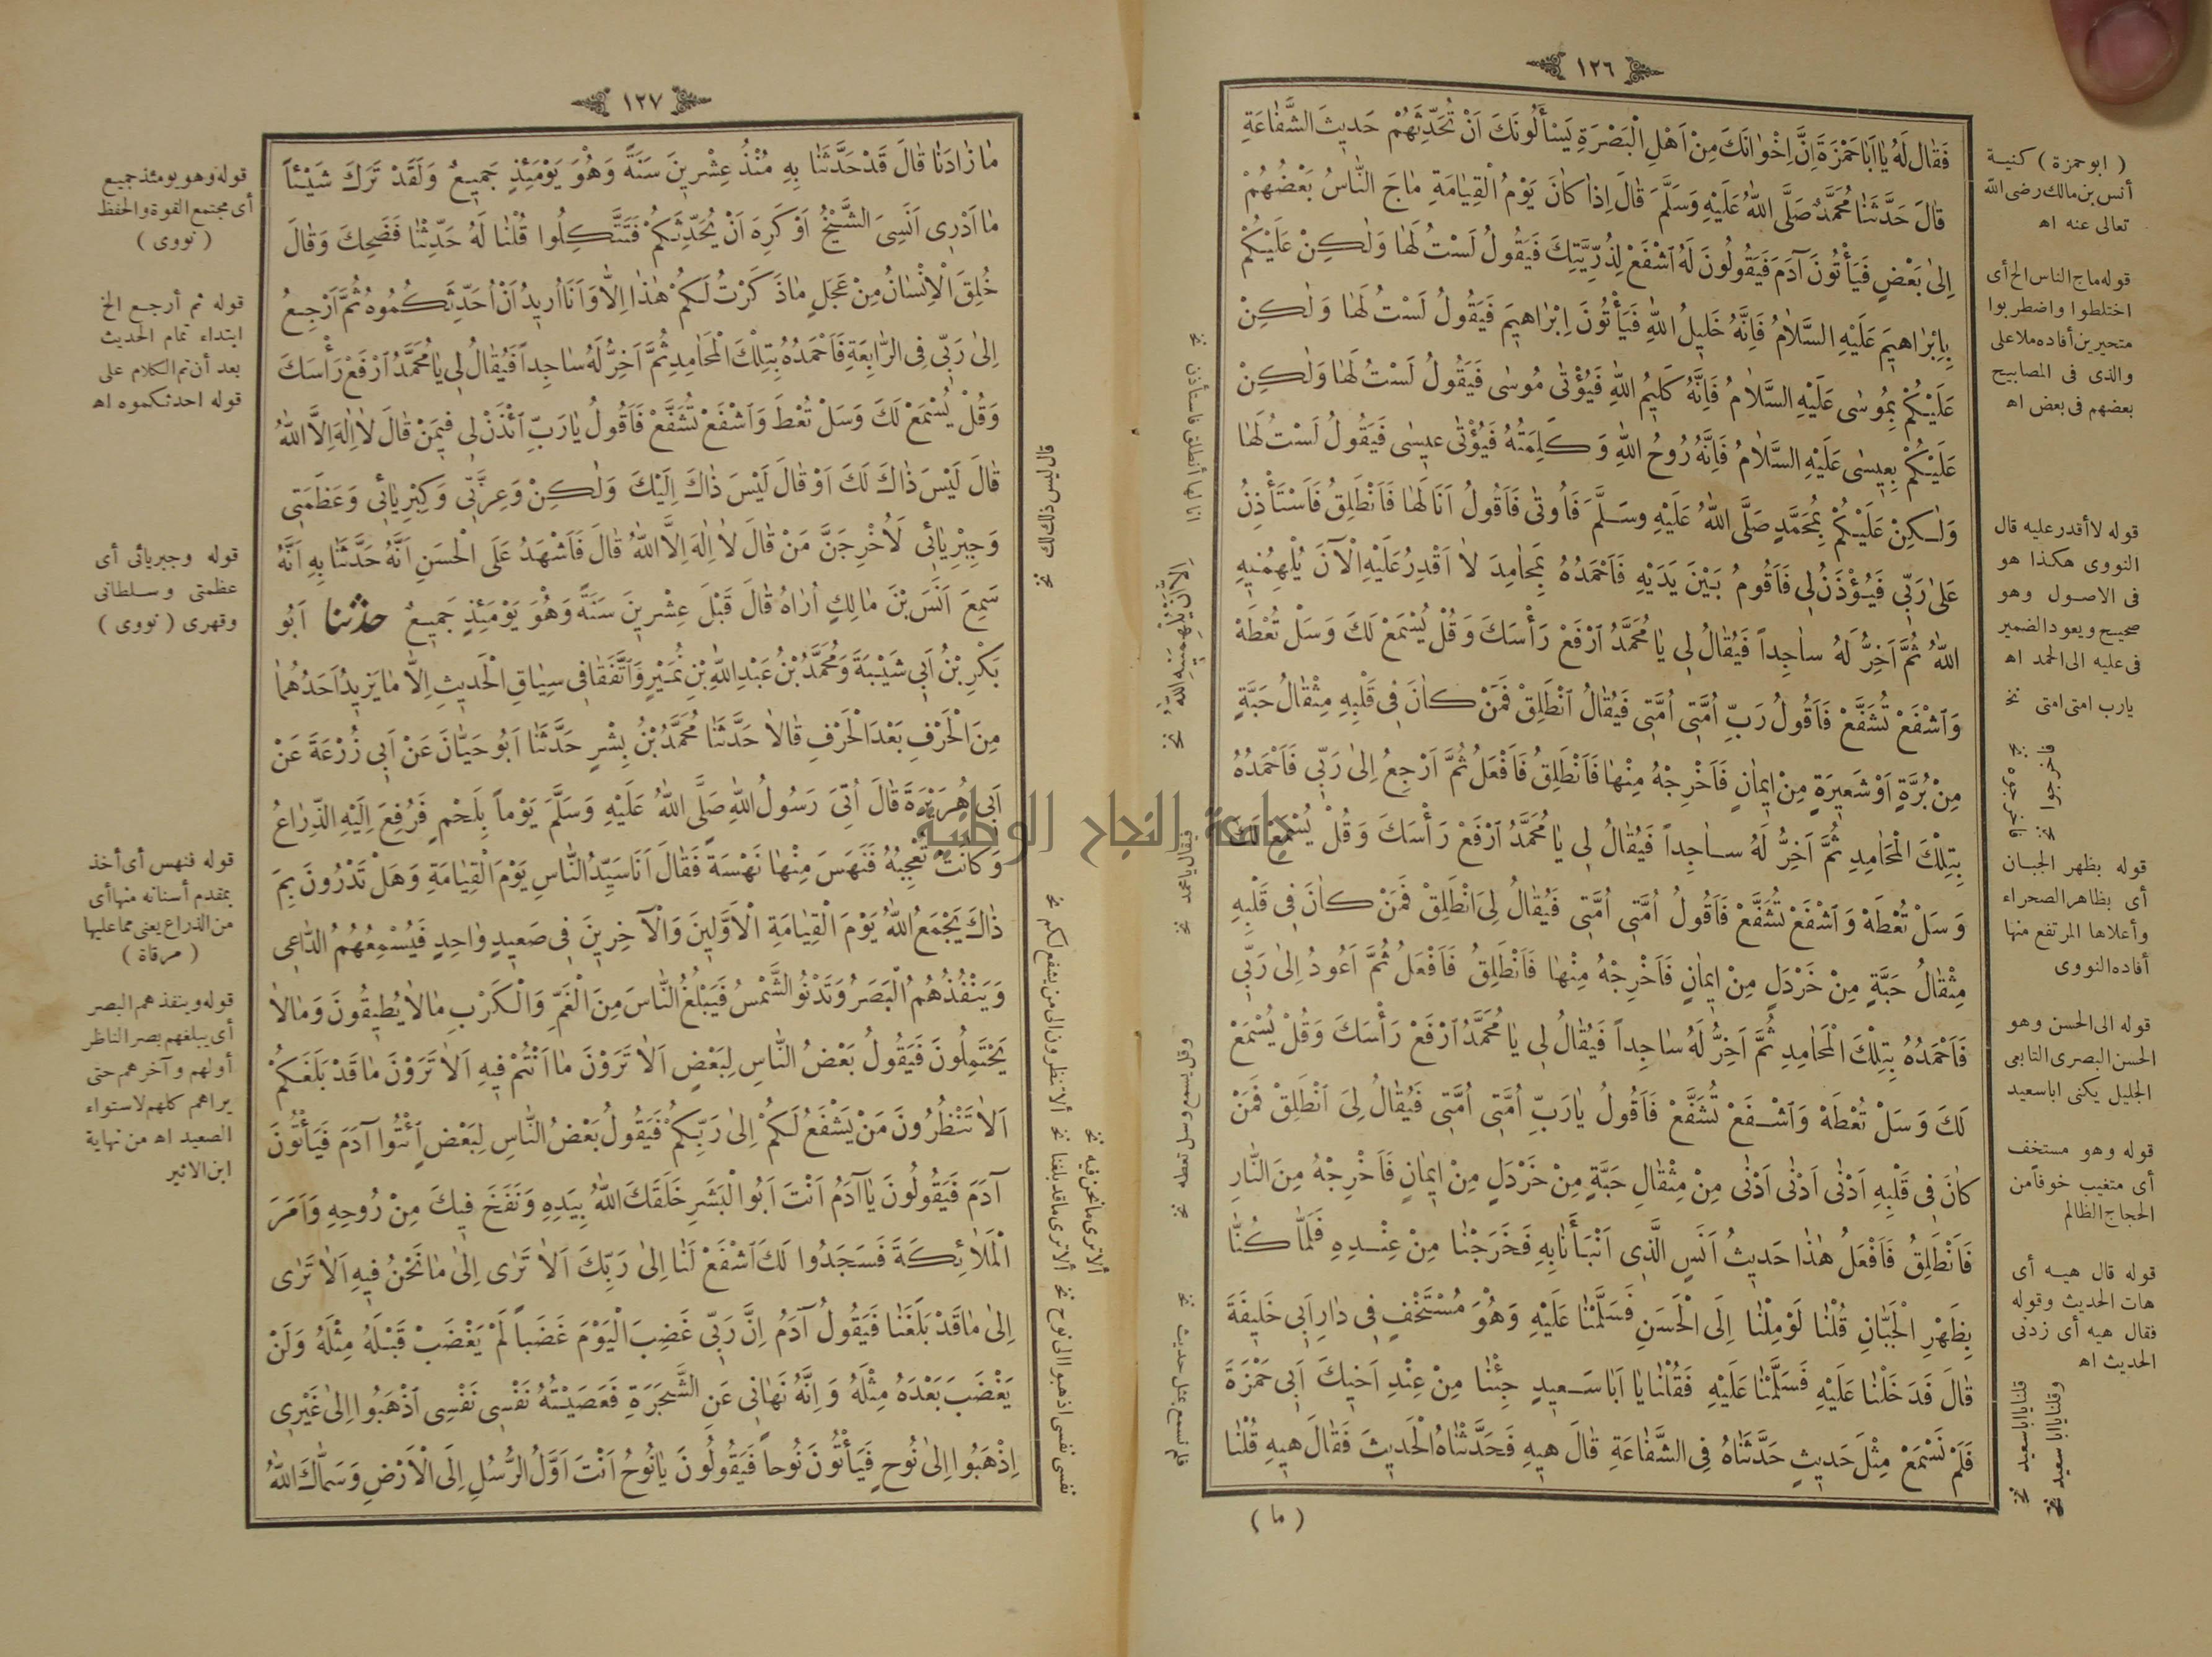 ١٢٦
فَقَالَ لَهُ يَا اَبَا حَمْزَةَ اِنَّ اِخْوَانَكَ مِنْ اَهْلِ الْبَصْرَةِ يَسْأَلُونَكَ اَنْ تُحَدِّثَهُمْ حَدِيثَ الشَّفَاعَةِ
قَالَ حَدَّثَنَا مُحَمَّدٌ صَلَّى اللّٰهُ عَلَيْهِ وَسَلَّمَ قَالَ اِذَا كَانَ يَوْمُ الْقِيَامَةِ مَاجَ النَّاسُ بَعْضُهُمْ
اِلٰى بَعْضٍ فَيَأْتُونَ آدَمَ فَيَقُولُونَ لَهُ اَشْفَعْ لِذُرِّيَّتِكَ فَيَقُولُ لَسْتُ لَهَا وَلٰكِنْ عَلَيْكُمْ
بِاِبْرَاهِيمَ عَلَيْهِ السَّلَامُ فَاِنَّهُ خَلِيلُ اللّٰهِ فَيَأْتُونَ اِبْرَاهِيمَ فَيَقُولُ لَسْتُ لَهَا وَلٰكِنْ
عَلَيْكُمْ بِمُوسٰى عَلَيْهِ السَّلَامُ فَاِنَّهُ كَلِيمُ اللّٰهِ فَيُؤْتٰى مُوسٰى فَيَقُولُ لَسْتُ لَهَا وَلٰكِنْ
عَلَيْكُمْ بِعِيسٰى عَلَيْهِ السَّلَامُ فَاِنَّهُ رُوحُ اللّٰهِ وَكَلِمَتُهُ فَيُؤْتٰى عِيسٰى فَيَقُولُ لَسْتُ لَهَا
وَلٰكِنْ عَلَيْكُمْ بِمُحَمَّدٍ صَلَّى اللّٰهُ عَلَيْهِ وَسَلَّمَ فَاُوتٰى فَاَقُولُ اَنَا لَهَا فَاَنْطَلِقُ فَاَسْتَأْذِنُ
عَلٰى رَبِّى فَيُؤْذَنُ لِى فَاَقُومُ بَيْنَ يَدَيْهِ فَاَحْمَدُهُ بِمَحَامِدَ لَا اَقْدِرُ عَلَيْهِ الْآنَ يُلْهِمُنِيهِ
اللّٰهُ ثُمَّ اَخِرُّ لَهُ سَاجِداً فَيُقَالُ لِى يَا مُحَمَّدُ اَرْفَعْ رَأْسَكَ وَقُلْ يُسْمَعْ لَكَ وَسَلْ تُعْطَهْ
وَاَشْفَعْ تُشَفَّعْ فَاَقُولُ رَبِّ اُمَّتِى اُمَّتِى فَيُقَالُ اَنْطَلِقْ فَمَنْ كَانَ فِى قَلْبِهِ مِثْقَالُ حَبَّةٍ
مِنْ بُرَّةٍ اَوْ شَعِيرَةٍ مِنْ اِيمَانٍ فَاَخْرِجْهُ مِنْهَا فَاَنْطَلِقُ فَاَفْعَلُ ثُمَّ اَرْجِعُ اِلٰى رَبِّى فَاَحْمَدُهُ
بِتِلْكَ الْمَحَامِدِ ثُمَّ اَخِرُّ لَهُ سَاجِداً فَيُقَالُ لِى يَا مُحَمَّدُ اَرْفَعْ رَأْسَكَ وَقُلْ يُسْمَعْ لَكَ
وَسَلْ تُعْطَهْ وَاَشْفَعْ تُشَفَّعْ فَاَقُولُ اُمَّتِى اُمَّتِى فَيُقَالُ لِىَ اَنْطَلِقْ فَمَنْ كَانَ فِى قَلْبِهِ
مِثْقَالُ حَبَّةٍ مِنْ خَرْدَلٍ مِنْ اِيمَانٍ فَاَخْرِجْهُ مِنْهَا فَاَنْطَلِقُ فَاَفْعَلُ ثُمَّ اَعُودُ اِلٰى رَبِّى
فَاَحْمَدُهُ بِتِلْكَ الْمَحَامِدِ ثُمَّ اَخِرُّ لَهُ سَاجِداً فَيُقَالُ لِى يَا مُحَمَّدُ اَرْفَعْ رَأْسَكَ وَقُلْ يُسْمَعْ
لَكَ وَسَلْ تُعْطَهْ وَاَشْفَعْ تُشَفَّعْ فَاَقُولُ يَارَبِّ اُمَّتِى اُمَّتِى فَيُقَالُ لِىَ اَنْطَلِقْ فَمَنْ
كَانَ فِى قَلْبِهِ اَدْنٰى اَدْنٰى اَدْنٰى مِنْ مِثْقَالِ حَبَّةٍ مِنْ خَرْدَلٍ مِنْ اِيمَانٍ فَاَخْرِجْهُ مِنَ النَّارِ
فَاَنْطَلِقُ فَاَفْعَلُ هٰذَا حَدِيثُ اَنَسٍ الَّذِى اَنْبَأَنَا بِهِ فَخَرَجْنَا مِنْ عِنْدِهِ فَلَمَّا كُنَّا
بِظَهْرِ الْجَبَّانِ قُلْنَا لَوْ مِلْنَا اِلَى الْحَسَنِ فَسَلَّمْنَا عَلَيْهِ وَهُوَ مُسْتَخْفٍ فِى دَارِ اَبِى خَلِيفَةَ
قَالَ فَدَخَلْنَا عَلَيْهِ فَسَلَّمْنَا عَلَيْهِ فَقُلْنَا يَا اَبَا سَعِيدٍ جِئْنَا مِنْ عِنْدِ اَخِيكَ اَبِى حَمْزَةَ
فَلَمْ نَسْمَعْ مِثْلَ حَدِيثٍ حَدَّثَنَاهُ فِى الشَّفَاعَةِ قَالَ هِيهِ فَحَدَّثْنَاهُ الْحَدِيثَ فَقَالَ هِيهِ قُلْنَا
( ما )
( ابو حمزة ) كنية
أنس بن مالك رضى الله
تعالى عنه اه
قوله ماج الناس الخ أى
اختلطوا واضطربوا
متحيرين أفاده ملا على
والذى فى المصابيح
بعضهم فى بعض اه
قوله لا أقدر عليه قال
النووى هكذا هو
فى الاصول وهو
صحيح ويعود الضمير
فى عليه الى الحمد اه
يارب امتى امتى نخ
فاخرجوا نخ
قوله بظهر الجبان
أى بظاهر الصحراء
وأعلاها المرتفع منها
أفاده النووى
قوله الى الحسن وهو
الحسن البصرى التابعى
الجليل يكنى ابا سعيد
قوله وهو مستخف
أى متغيب خوفاً من
الحجاج الظالم
قوله قال هيه أى
هات الحديث وقوله
فقال هيه أى زدنى
الحديث اه
قلنا يا ابا سعيد نخ
وقلنا يا ابا سعيد نخ
انا لها أنطلق فاستأذن نخ
الآن يلهمنيه الله نخ
فيقال يا محمد نخ
وقل يسمع وسل تعطه نخ
فلم نسمع بمثل حديث نخ
جامعة النجاح الوطنية
١٢٧
مَا زَادَنَا قَالَ قَدْ حَدَّثَنَا بِهِ مُنْذُ عِشْرِينَ سَنَةً وَهُوَ يَوْمَئِذٍ جَمِيعٌ وَلَقَدْ تَرَكَ شَيْئاً
مَا اَدْرِى اَنَسِىَ الشَّيْخُ اَوْ كَرِهَ اَنْ يُحَدِّثَكُمْ فَتَتَّكِلُوا قُلْنَا لَهُ حَدِّثْنَا فَضَحِكَ وَقَالَ
خُلِقَ الْاِنْسَانُ مِنْ عَجَلٍ مَا ذَكَرْتُ لَكُمْ هٰذَا اِلَّا وَاَنَا اُرِيدُ اَنْ اُحَدِّثَكُمُوهُ ثُمَّ اَرْجِعُ
اِلٰى رَبِّى فِى الرَّابِعَةِ فَاَحْمَدُهُ بِتِلْكَ الْمَحَامِدِ ثُمَّ اَخِرُّ لَهُ سَاجِداً فَيُقَالُ لِى يَا مُحَمَّدُ اَرْفَعْ رَأْسَكَ
وَقُلْ يُسْمَعْ لَكَ وَسَلْ تُعْطَ وَاَشْفَعْ تُشَفَّعْ فَاَقُولُ يَارَبِّ اَئْذَنْ لِى فِيمَنْ قَالَ لَا اِلٰهَ اِلَّا اللّٰهُ
قَالَ لَيْسَ ذَاكَ لَكَ اَوْ قَالَ لَيْسَ ذَاكَ اِلَيْكَ وَلٰكِنْ وَعِزَّتِى وَكِبْرِيَائِى وَعَظَمَتِى
وَجِبْرِيَائِى لَاُخْرِجَنَّ مَنْ قَالَ لَا اِلٰهَ اِلَّا اللّٰهُ قَالَ فَاَشْهَدُ عَلَى الْحَسَنِ اَنَّهُ حَدَّثَنَا بِهِ اَنَّهُ
سَمِعَ اَنَسَ بْنَ مَالِكٍ اُرَاهُ قَالَ قَبْلَ عِشْرِينَ سَنَةً وَهُوَ يَوْمَئِذٍ جَمِيعٌ حدثنا اَبُو
بَكْرِ بْنُ اَبِى شَيْبَةَ وَمُحَمَّدُ بْنُ عَبْدِ اللّٰهِ بْنِ نُمَيْرٍ وَاَتَّفَقَا فِى سِيَاقِ الْحَدِيثِ اِلَّا مَا يَزِيدُ اَحَدُهُمَا
مِنَ الْحَرْفِ بَعْدَ الْحَرْفِ قَالَا حَدَّثَنَا مُحَمَّدُ بْنُ بِشْرٍ حَدَّثَنَا اَبُو حَيَّانَ عَنْ اَبِى زُرْعَةَ عَنْ
اَبِى هُرَيْرَةَ قَالَ اُتِىَ رَسُولُ اللّٰهِ صَلَّى اللّٰهُ عَلَيْهِ وَسَلَّمَ يَوْماً بِلَحْمٍ فَرُفِعَ اِلَيْهِ الذِّرَاعُ
وَكَانَتْ تُعْجِبُهُ فَنَهَسَ مِنْهَا نَهْسَةً فَقَالَ اَنَا سَيِّدُ النَّاسِ يَوْمَ الْقِيَامَةِ وَهَلْ تَدْرُونَ بِمَ
ذَاكَ يَجْمَعُ اللّٰهُ يَوْمَ الْقِيَامَةِ الْاَوَّلِينَ وَالْآخِرِينَ فِى صَعِيدٍ وَاحِدٍ فَيُسْمِعُهُمُ الدَّاعِى
وَيَنْفُذُهُمُ الْبَصَرُ وَتَدْنُو الشَّمْسُ فَيَبْلُغُ النَّاسَ مِنَ الْغَمِّ وَالْكَرْبِ مَا لَا يُطِيقُونَ وَمَا لَا
يَحْتَمِلُونَ فَيَقُولُ بَعْضُ النَّاسِ لِبَعْضٍ اَلَا تَرَوْنَ مَا اَنْتُمْ فِيهِ اَلَا تَرَوْنَ مَا قَدْ بَلَغَكُمْ
اَلَا تَنْظُرُونَ مَنْ يَشْفَعُ لَكُمْ اِلٰى رَبِّكُمْ فَيَقُولُ بَعْضُ النَّاسِ لِبَعْضٍ اَئْتُوا آدَمَ فَيَأْتُونَ
آدَمَ فَيَقُولُونَ يَا آدَمُ اَنْتَ اَبُو الْبَشَرِ خَلَقَكَ اللّٰهُ بِيَدِهِ وَنَفَخَ فِيكَ مِنْ رُوحِهِ وَاَمَرَ
الْمَلَائِكَةَ فَسَجَدُوا لَكَ اَشْفَعْ لَنَا اِلٰى رَبِّكَ اَلَا تَرٰى اِلٰى مَا نَحْنُ فِيهِ اَلَا تَرٰى
اِلٰى مَا قَدْ بَلَغَنَا فَيَقُولُ آدَمُ اِنَّ رَبِّى غَضِبَ الْيَوْمَ غَضَباً لَمْ يَغْضَبْ قَبْلَهُ مِثْلَهُ وَلَنْ
يَغْضَبَ بَعْدَهُ مِثْلَهُ وَاِنَّهُ نَهَانِى عَنِ الشَّجَرَةِ فَعَصَيْتُهُ نَفْسِى نَفْسِى اَذْهَبُوا اِلٰى غَيْرِى
اِذْهَبُوا اِلٰى نُوحٍ فَيَأْتُونَ نُوحاً فَيَقُولُونَ يَا نُوحُ اَنْتَ اَوَّلُ الرُّسُلِ اِلَى الْاَرْضِ وَسَمَّاكَ اللّٰهُ
قوله وهو يومئذ جميع
أى مجتمع القوة والحفظ
( نووى )
قوله ثم أرجع الخ
ابتداء تمام الحديث
بعد أن تم الكلام على
قوله احدثكموه اه
قوله وجبريائى أى
عظمتى وسلطانى
وقهرى ( نووى )
قوله فنهس أى أخذ
بمقدم أسنانه منها أى
من الذراع يعنى مما عليها
( مرقاة )
قوله وينفذهم البصر
أى يبلغهم بصر الناظر
أولهم وآخرهم حتى
يراهم كلهم لاستواء
الصعيد اه من نهاية
ابن الاثير
قال ليس ذلك لك نخ
ألا تنظرون الى من يشفع لكم نخ
ألا ترى ما نحن فيه نخ
ألا ترى ما قد بلغنا نخ
نفسى نفسى اذهبوا الى نوح نخ